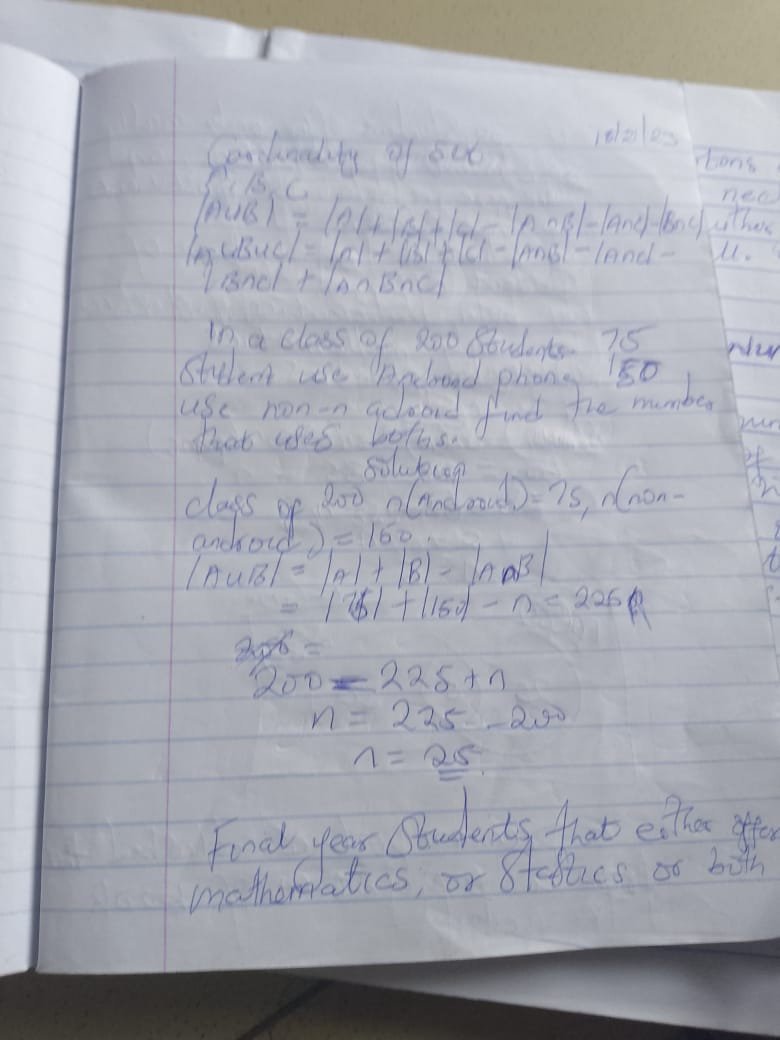 Cardinality of set
A, B, C
|AUB| = |A| + |B| + |C| - |AnB| - |Anc| - |Bnc|
|AUBUC| = |A| + |B| + |C| - |AnB| - |Anc| -
|Bnc| + |AnBnC|
In a class of 200 Students 75
Student use Android phone 150
use non-n android find the number
that uses boths.
Solution
class of 200 n(Android) = 75, n(non-
android) = 150.
|AUB| = |A| + |B| - |AnB|
= |75| + |150| - n = 225
200 =
200 = 225 + n
n = 225 - 200
n = 25
Final year Students that either offer
mathematics, or Stastics or both
rtions
nec
M.